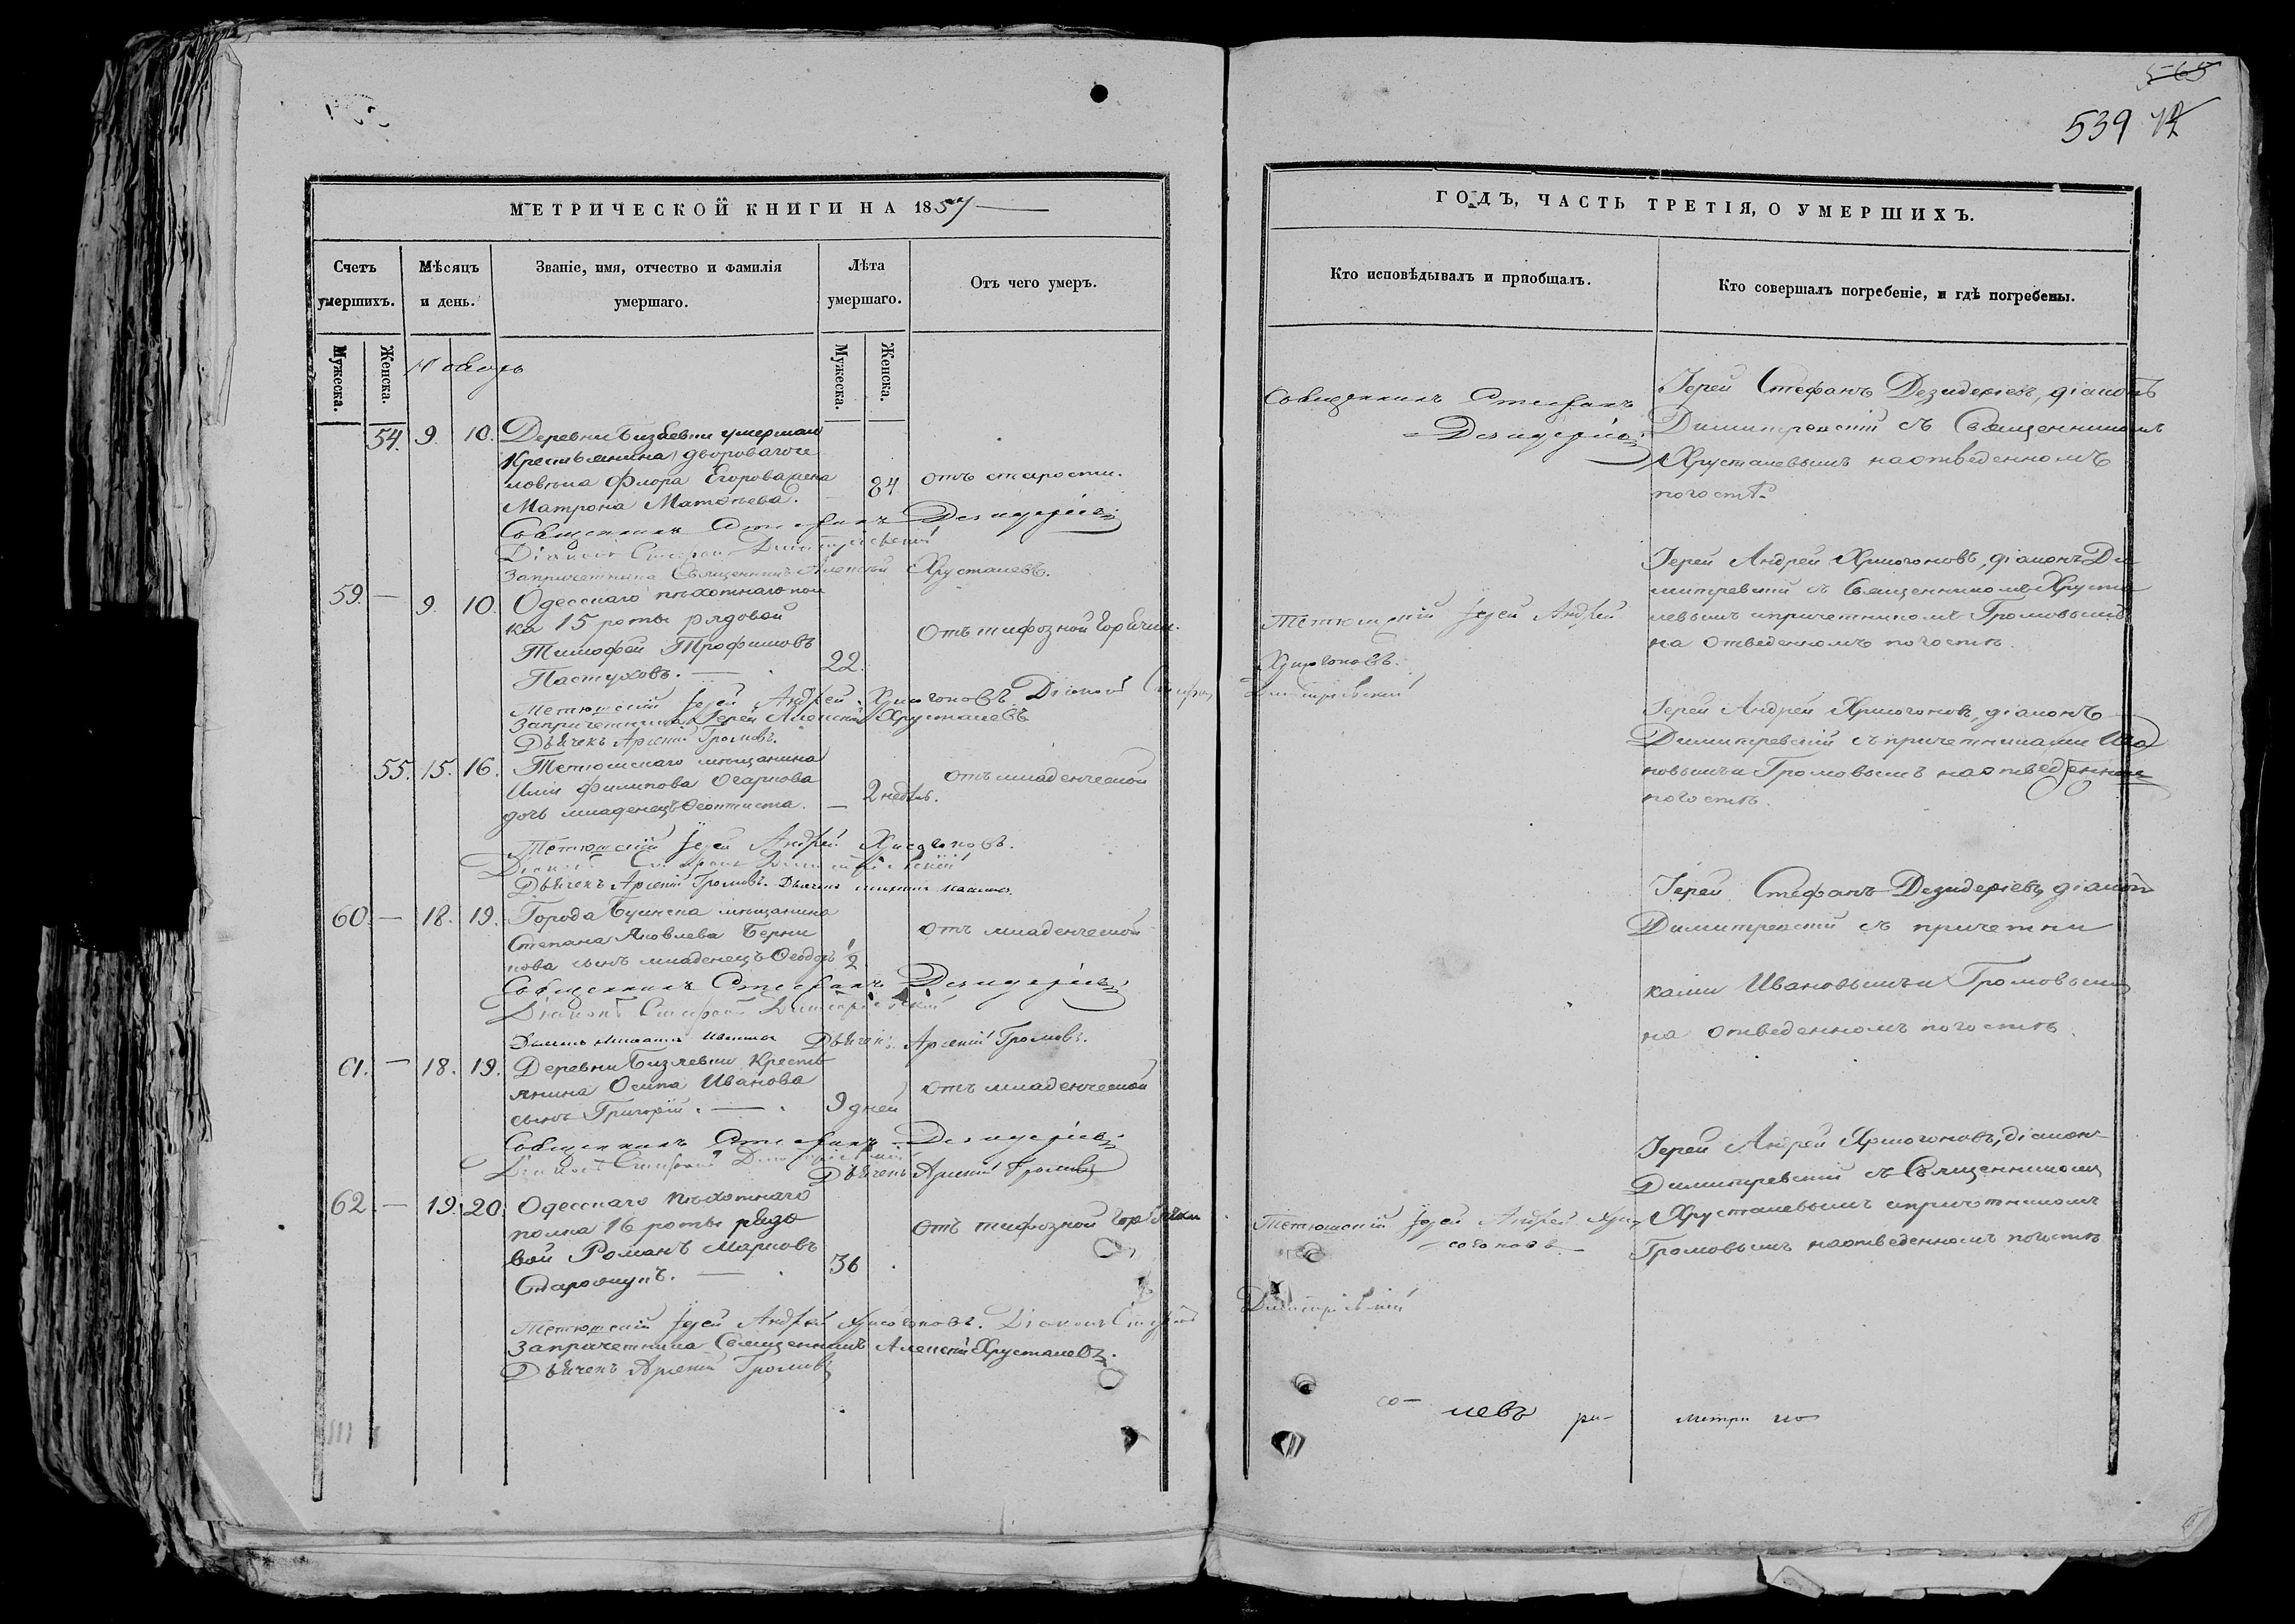 565
539
МЕТРИЧЕСКОЙ КНИГИ НА 1857
ГОДЪ, ЧАСТЬ ТРЕТІЯ, О УМЕРШИХЪ.
Счетъ умершихъ.
Мѣсяцъ и день.
Званіе, имя, отчество и фамилія умершаго.
Лѣта умершаго.
Отъ чего умеръ.
Кто исповѣдывалъ и пріобщалъ.
Кто совершалъ погребеніе, и гдѣ погребены.
Мужеска.
Женска.
Мужеска.
Женска.
Ноябрь
54. 9. 10. Деревни умершаго
Крестьянина дворового че
ловѣка Флора Егорова жена
Матрона Матвѣева. — 84 отъ старости.
Священникъ Стефанъ Дезидеріевъ
Діаконъ Стефанъ Димитревскій
За причетника Священникъ Алексѣй Хрусталевъ.
Священникъ Стефанъ
Дезидеріевъ
Іерей Стефанъ Дезидеріевъ, діаконъ
Димитревскій съ Священникомъ
Хрусталевымъ на отведенномъ
погостѣ.
59. — 9. 10. Одесскаго пѣхотнаго пол
ка 15 роты рядовой
Тимофей Трофимовъ
Пастуховъ. — 22. Отъ тифозной горячки.
Тетюшскій Іерей Андрей Хрисогоновъ. Діаконъ Стефанъ Димитревскій
За причетника Іерей Алексѣй Хрусталевъ
Дьячекъ Арсеній Громовъ.
Тетюшскій Іерей Андрей
Хрисогоновъ.
Іерей Андрей Хрисогоновъ, діаконъ Ди
митревскій съ Священникомъ Хруста
левымъ и причетникомъ Громовымъ
на отведенномъ погостѣ.
55. 15. 16. Тетюшскаго мѣщанина
Филипова
дочь младенецъ Феоктиста. — 2 недѣл. отъ младенческой
Тетюшскій Іерей Андрей Хрисогоновъ.
Діаконъ Стефанъ Димитревскій
Дьячекъ Арсеній Громовъ.
Іерей Андрей Хрисогоновъ, діаконъ
Димитревскій съ причетниками Ива
новымъ и Громовымъ на отведенномъ
погостѣ.
60. — 18. 19. Города Буинска мѣщанина
Степана Яковлева
сынъ младенецъ Феодоръ ½ отъ младенческой
Священникъ Стефанъ Дезидеріевъ
Діаконъ Стефанъ Димитревскій
Дьячекъ Арсеній Громовъ.
Іерей Стефанъ Дезидеріевъ, діаконъ
Димитревскій съ причетни
ками Ивановымъ и Громовымъ
на отведенномъ погостѣ.
61. — 18. 19. Деревни Кресть
янина Осипа Иванова
сынъ Григорій. — 9 дней отъ младенческой
Священникъ Стефанъ Дезидеріевъ
Діаконъ Стефанъ Димитревскій
Дьячекъ Арсеній Громовъ
62. — 19. 20. Одесскаго пѣхотнаго
полка 16 роты рядо
вой Романъ Марковъ
36 Отъ тифозной горячки
Тетюшскій Іерей Андрей Хрисогоновъ. Діаконъ Стефанъ Димитревскій
За причетника Священникъ Алексѣй Хрусталевъ.
Дьячекъ Арсеній Громовъ
Тетюшскій Іерей Андрей Хри
согоновъ.
Іерей Андрей Хрисогоновъ, діаконъ
Димитревскій съ Священникомъ
Хрусталевымъ и причетникомъ
Громовымъ на отведенномъ погостѣ
со- левъ ри- метри